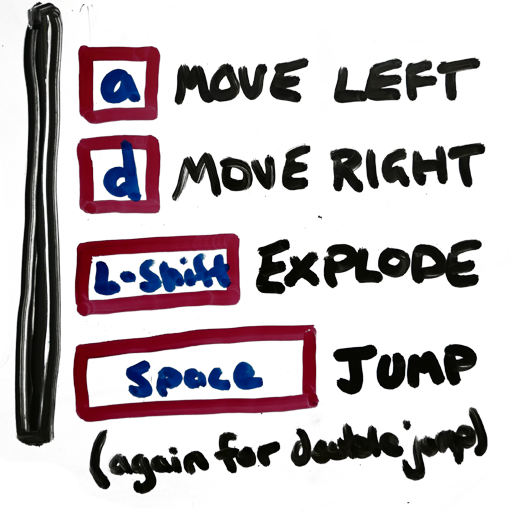 a MOVE LEFT
d MOVE RIGHT
L-Shift EXPLODE
Space JUMP
(again for double jump)